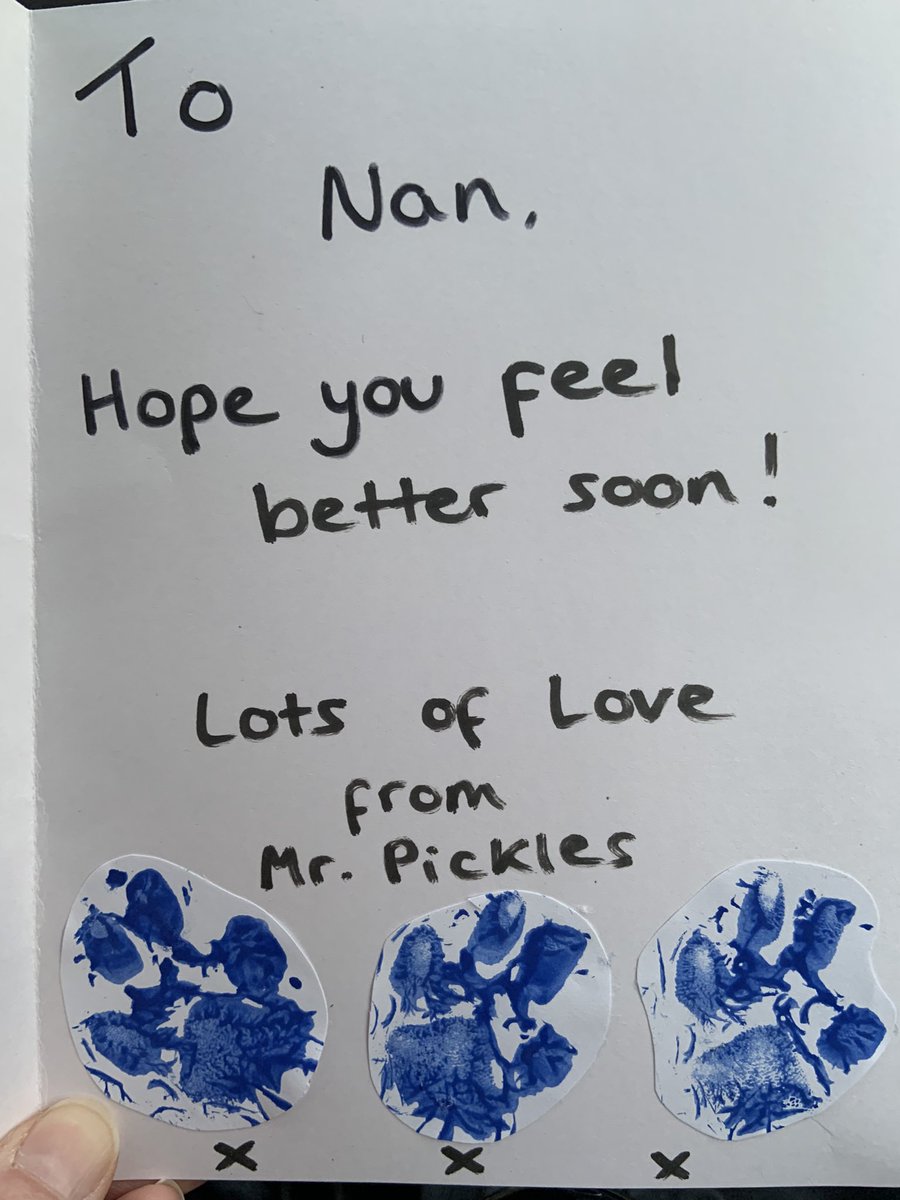 To
Nan,
Hope you feel
better soon!
Lots of Love
from
Mr. Pickles
x x x